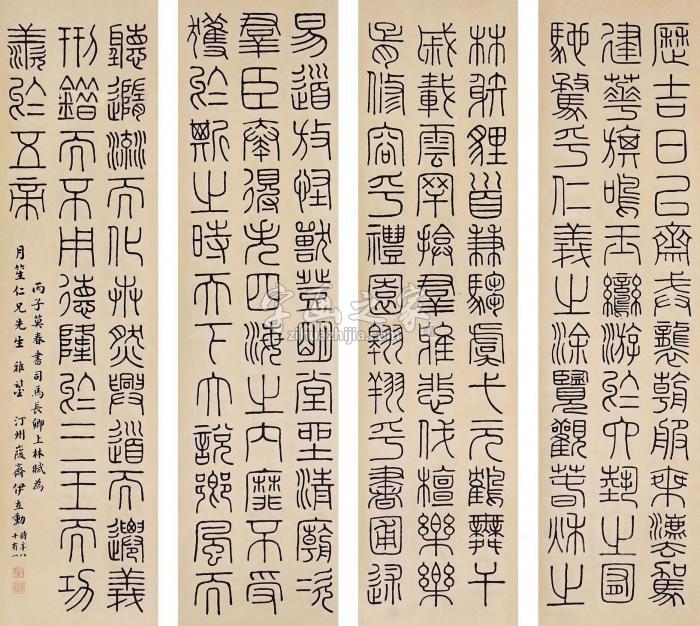 歷吉日㠯齋戒襲朝服乘灋駕
建華旗鳴玉鸞游於六藝之囿
馳騖乎仁義之涂覽觀春秋之
林射貍首兼騶虞弋元鶴舞干
戚載雲罕揜羣雅悲伐檀樂樂
胥修容乎禮園翱翔乎書圃述
易道放怪獸登明堂坐清廟次
羣臣奏得失四海之內靡不受
獲於斯之時天下大說鄉風而
聽隨流而化芔然興道而遷義
刑錯而不用德隆於三王而功
羨於五帝
丙子莫春書司馬長卿上林賦為
月笙仁兄先生雅鑒 汀州峻齋伊立勳 時年八
十有一
字画之家
zihuazhijia.com